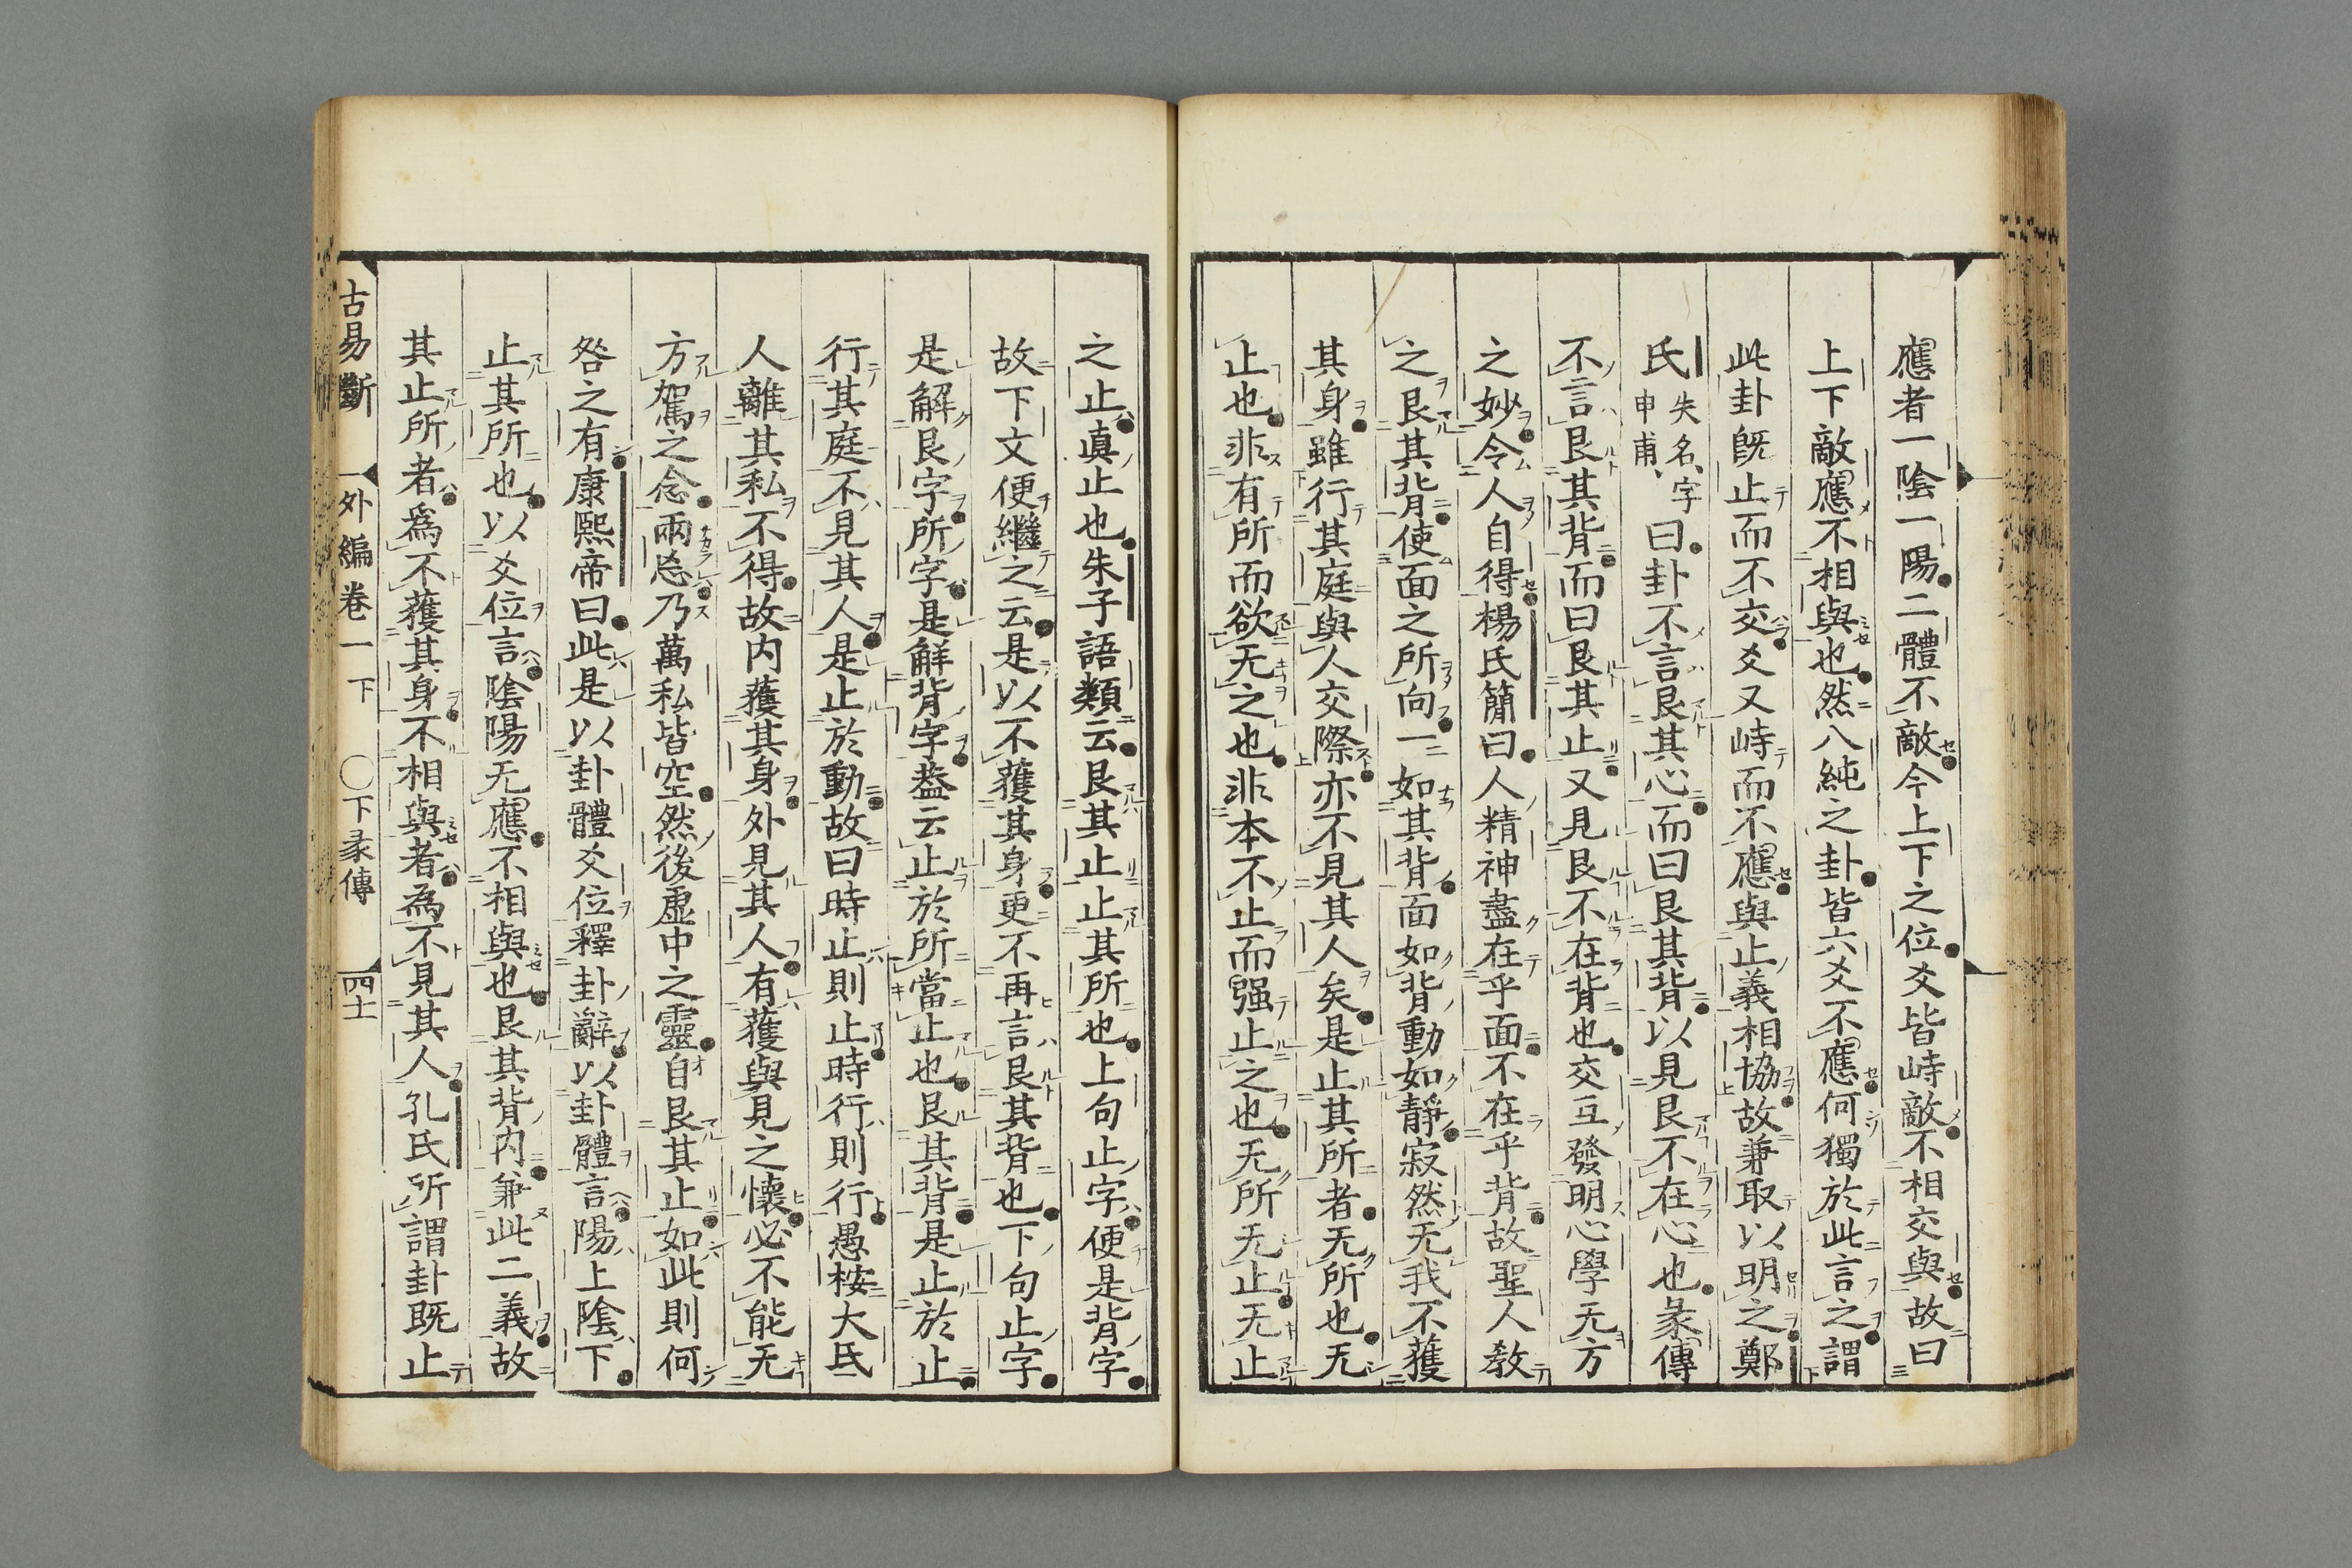 應者一陰一陽二體不敵今上下之位爻皆峙敵不相交與故曰
上下敵應不相與也然八純之卦皆六爻不應何獨於此言之謂
此卦既止而不交爻又峙而不應與止義相協故兼取以明之鄭
氏失名字申甫曰卦不言艮其心而曰艮其背以見艮不在心也彖傳
不言艮其背而曰艮其止又見艮不在背也交互發明心學无方
之妙令人自得楊氏簡曰人精神盡在乎面不在乎背故聖人敎
之艮其背使面之所向一如其背面如背動如靜寂然无我不獲
其身雖行其庭與人交際亦不見其人矣是止其所者无所也无
止也非有所而欲无之也非本不止而强止之也无所无止无止
之止眞止也朱子語類云艮其止止其所也上句止字便是背字
故下文便繼之云是以不獲其身更不再言艮其背也下句止字
是解艮字所字是解背字葢云止於所當止也艮其背是止於止
行其庭不見其人是止於動故曰時止則止時行則行愚桉大氐
人離其私不得故内獲其身外見其人有獲與見之懷必不能无
方駕之念兩忘乃萬私皆空然後虛中之靈自艮其止如此則何
咎之有康熙帝曰此是以卦體爻位釋卦辭以卦體言陽上陰下
止其所也以爻位言陰陽无應不相與也艮其背内兼此二義故
其止所者爲不獲其身不相與者為不見其人孔氏所謂卦既止
古易斷 外編卷一下 〇下彖傳 四十